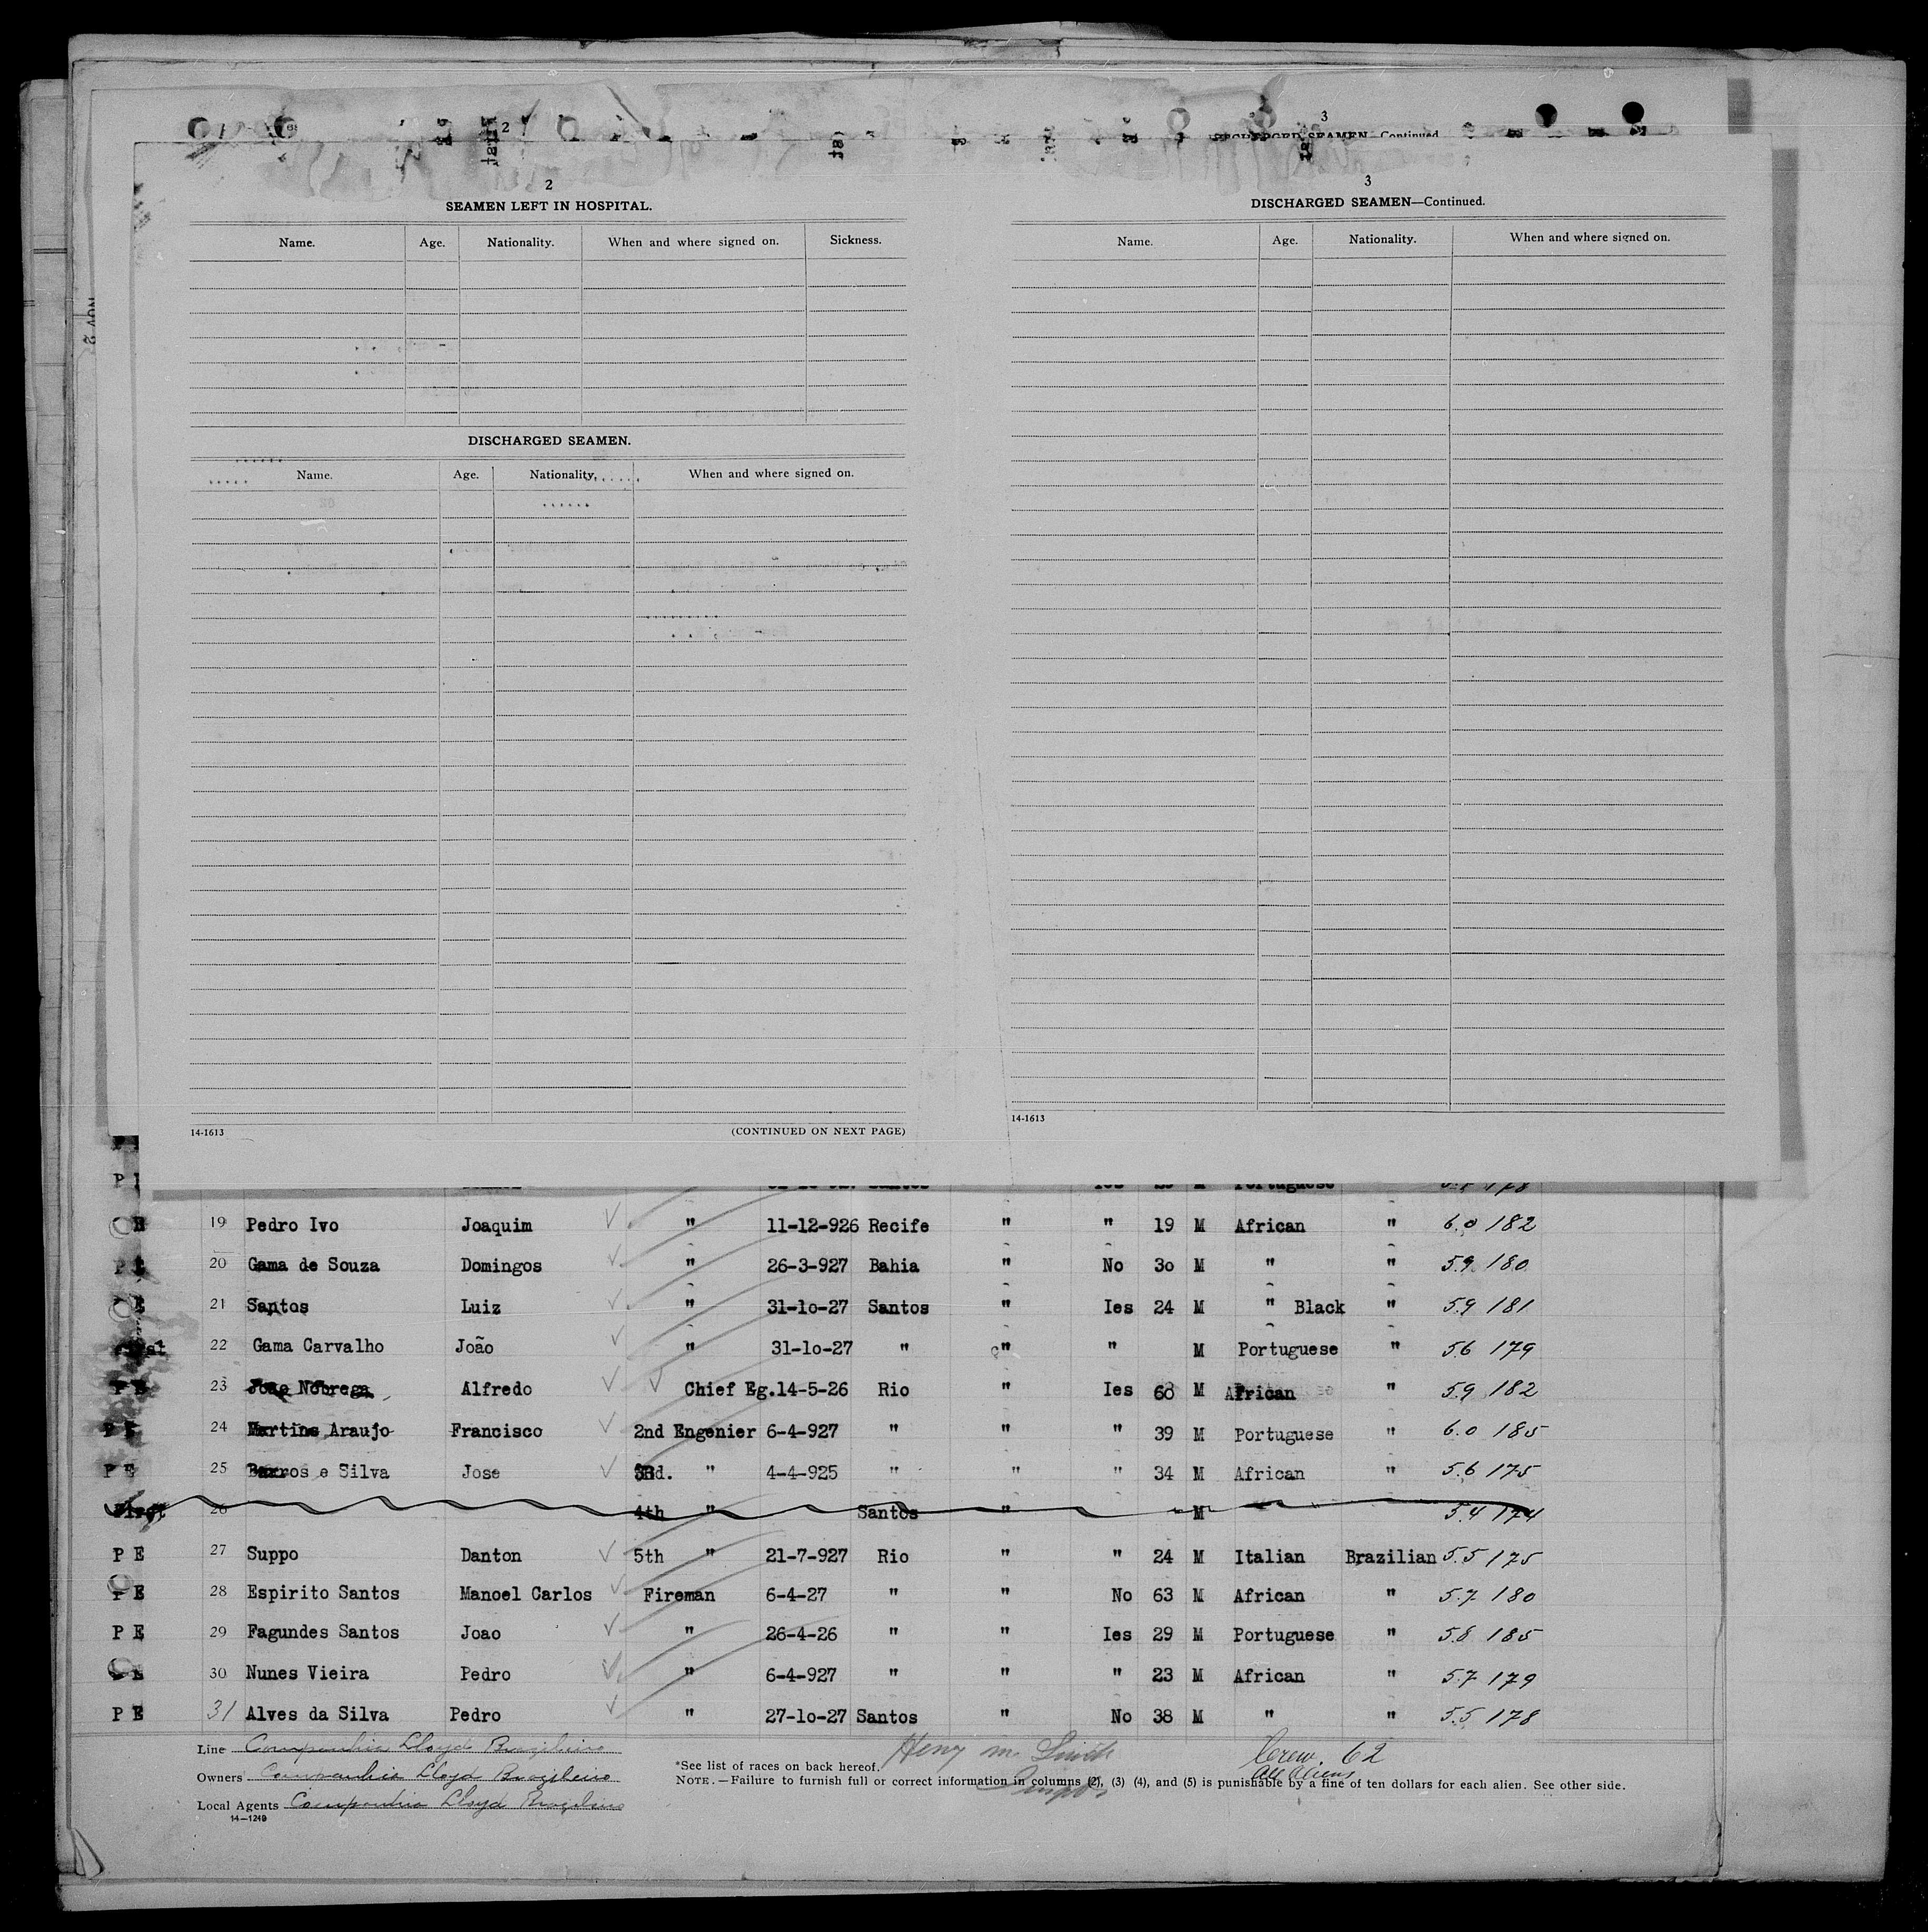 2
3
DISCHARGED SEAMEN—Continued
2
SEAMEN LEFT IN HOSPITAL.
Name. Age. Nationality. When and where signed on. Sickness.
DISCHARGED SEAMEN.
Name. Age. Nationality. When and where signed on.
14-1613 (CONTINUED ON NEXT PAGE)
3
DISCHARGED SEAMEN—Continued.
Name. Age. Nationality. When and where signed on.
14-1613
NOV 2
Portuguese 178
19 Pedro Ivo Joaquim " 11-12-926 Recife " " 19 M African " 6.0 182
P E 20 Gama de Souza Domingos " 26-3-927 Bahia " No 3o M " " 5.9 180
21 Santos Luiz " 31-1o-27 Santos " Ies 24 M " Black " 5.9 181
22 Gama Carvalho João " 31-1o-27 " " " M Portuguese " 56 179
P E 23 Joao Nobrega Alfredo Chief Eg. 14-5-26 Rio " Ies 60 M African " 59 182
P E 24 Martins Araujo Francisco 2nd Engenier 6-4-927 " " " 39 M Portuguese " 6.0 185
P E 25 Barros e Silva Jose 3Rd. " 4-4-925 " " " 34 M African " 5.6 175
26 4th " Santos " M 5.4 174
P E 27 Suppo Danton 5th " 21-7-927 Rio " " 24 M Italian Brazilian 5.5 175
P E 28 Espirito Santos Manoel Carlos Fireman 6-4-27 " " No 63 M African " 5.7 180
P E 29 Fagundes Santos Joao " 26-4-26 " " Ies 29 M Portuguese " 5.8 185
30 Nunes Vieira Pedro " 6-4-927 " " " 23 M African " 5.7 179
P E 31 Alves da Silva Pedro " 27-1o-27 Santos " No 38 M " " 5.5 178
Line Companhia Lloyd Brazileiro
Owners Companhia Lloyd Brazileiro
Local Agents Companhia Lloyd Brazileiro
14—1249
*See list of races on back hereof.
Henry M. Smith
Crew. 62
All Aliens
NOTE.—Failure to furnish full or correct information in columns (2), (3) (4), and (5) is punishable by a fine of ten dollars for each alien. See other side.